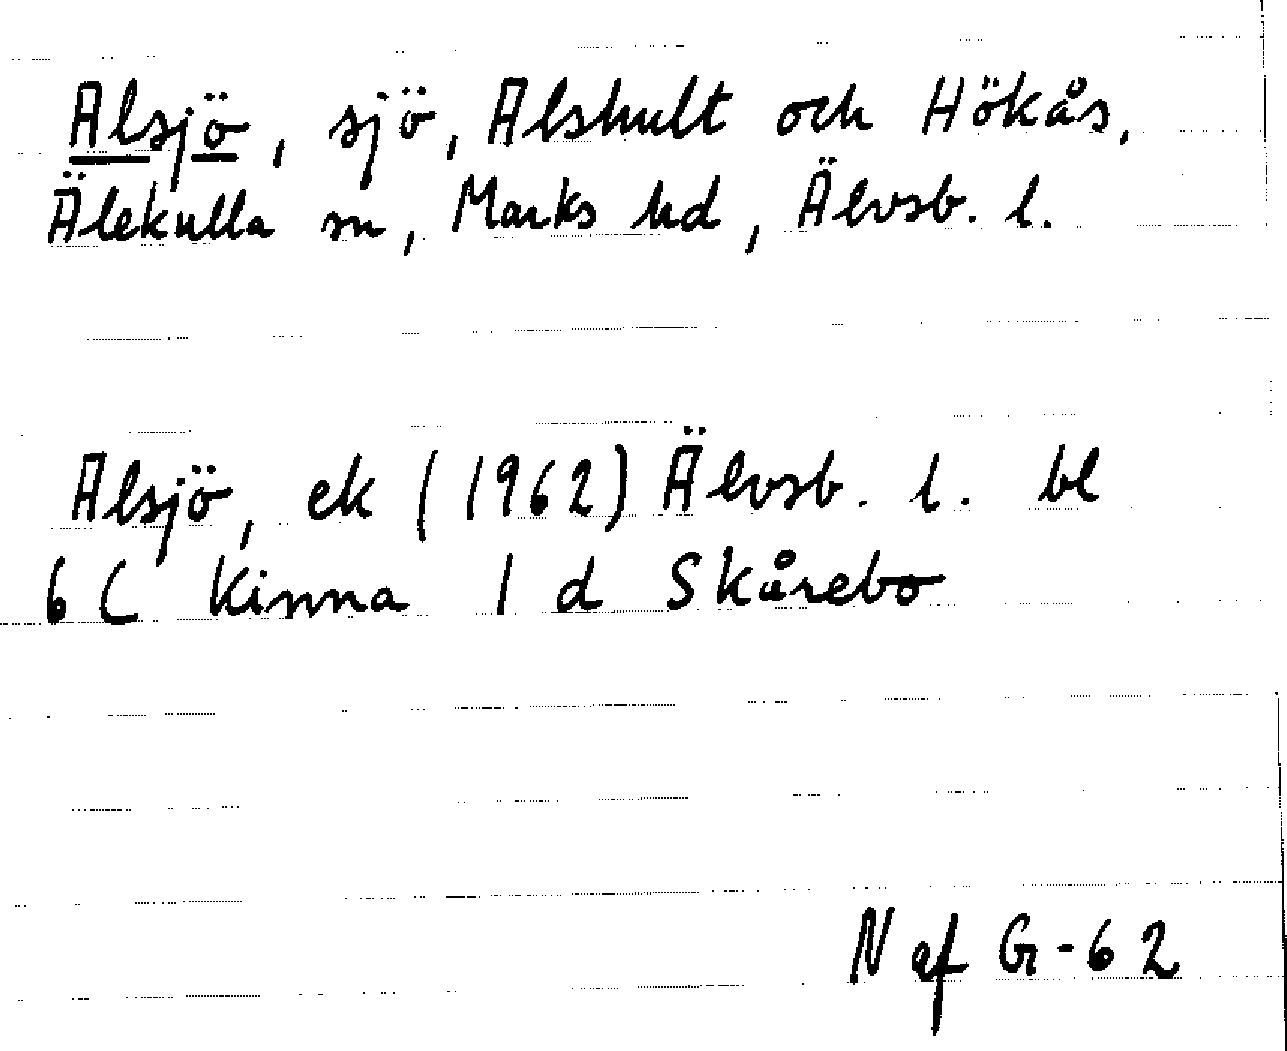 Alsjö, sjö, Alshult och Hökås,
Älekulla sn, Marks hd, Älvsb. l.
Alsjö, ek (1962) Älvsb. l. bl
6 C Kinna 1 d Skårebo
N af G-62